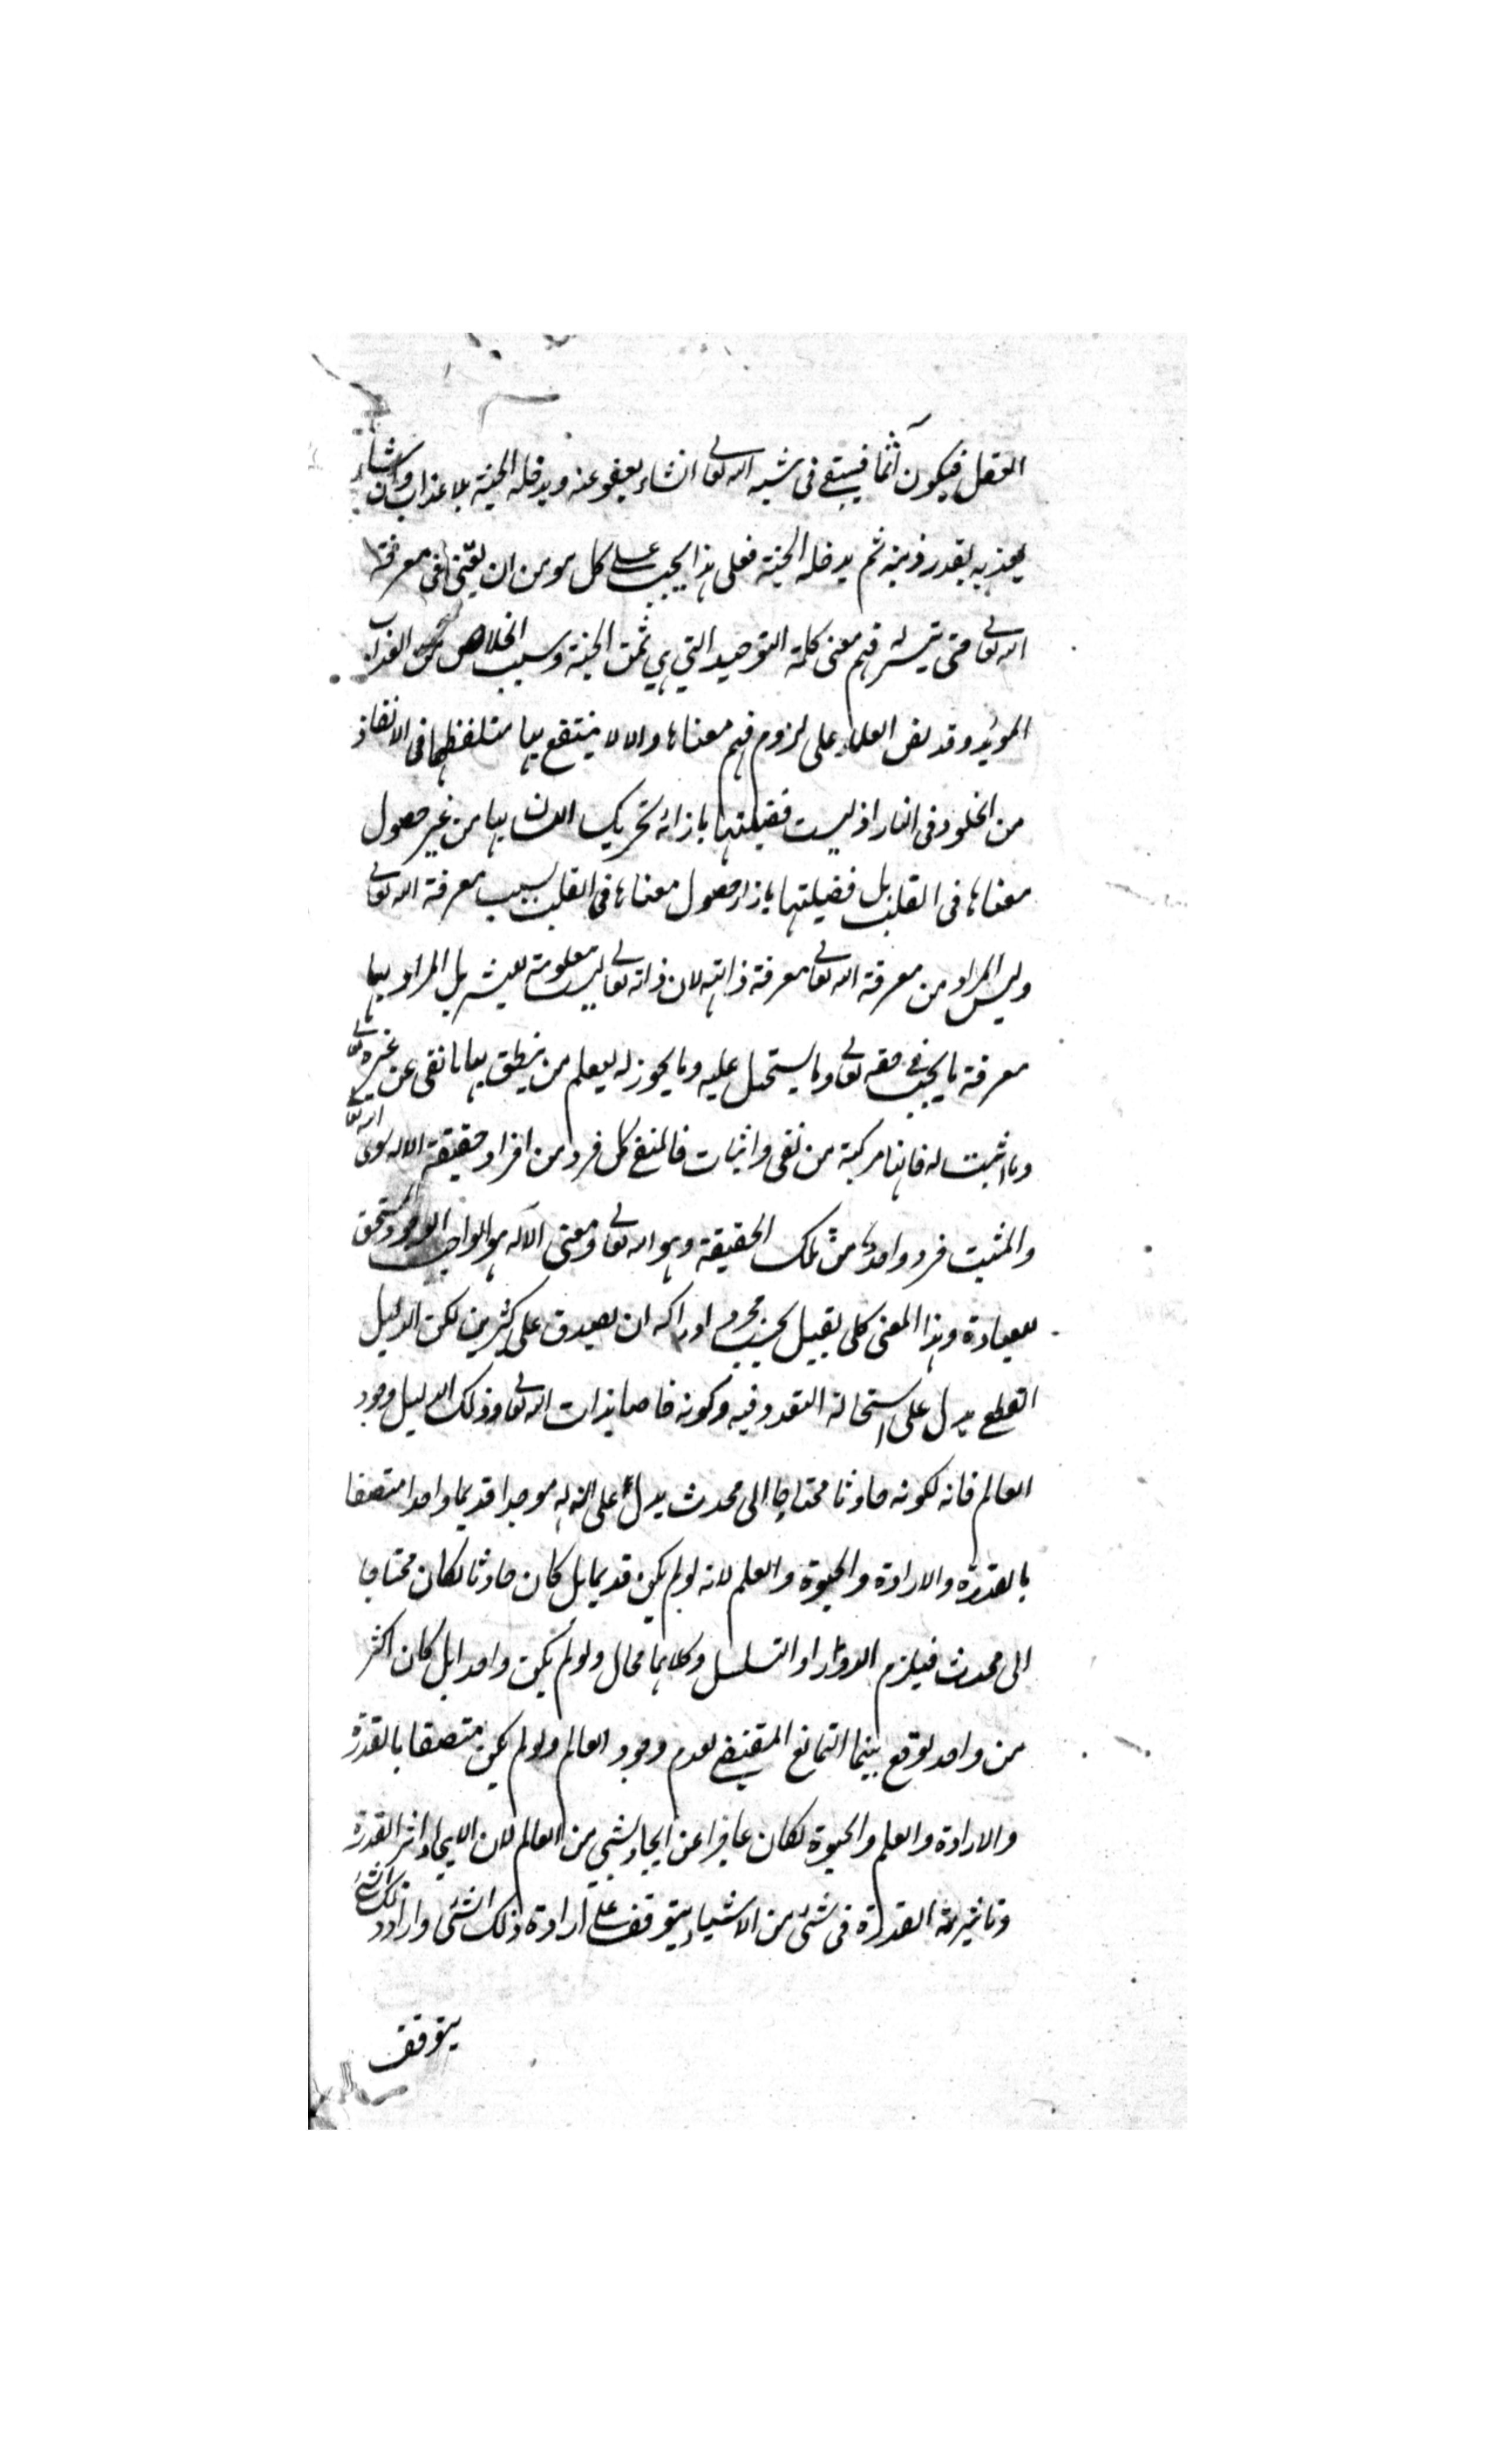 العقل فيكون آثما فيبقى فى مشية الله تعالى ان شاء يعفو عنه ويدخله الجنة بلا عذاب وان شاء
يعذبه بقدر ذنبه ثم يدخله الجنة فعلى هذا يجب على كل مومن ان يعتنى فى معرفة
الله تعالى حتى يتيسر له فهم معنى كلمة التوحيد التي هي ثمن الجنة وسبب الخلاص من العذاب
المويد وقد نص العلماء على لزوم فهم معناها والا لا ينتفع بها متلفظها فى الانقاذ
من الخلود فى النار اذ ليست فضيلتها بازائه تحريك اللسان بها من غير حصول
معناها فى القلب بل فضيلتها بازاء حصول معناها فى القلب بسبب معرفة الله تعالى
وليس المراد من معرفة الله تعالى معرفة ذاته لان ذاته تعالى ليست معلومة للبشر بل المراد بها
معرفة ما يجب فى حقه تعالى وما يستحيل عليه وما يجوز له ليعلم من ينطق بها ما نفى عن غيره تعالى
وما اثبت له فانها مركبة من نفى واثبات فالمنفى كل فرد من افراد حقيقة الاله سوى الله تعالى
والمثبت فرد واحد من تلك الحقيقة وهو الله تعالى ومعنى الآله هو الواجب الوجود المستحق
للعبادة وهذا المعنى كلى يقبل بحسب مجرد ادراكه ان يصدق على كثيرين لكن الدليل
القطعى يدل على استحالة التعدد فيه وكونه خاصا بذات الله تعالى وذلك الدليل وجود
العالم فانه لكونه حادثا محتاجا الى محدث يدل على ان له موجدا قديما واحدا متصفا
بالقدرة والارادة والحيوة والعلم لانه لو لم يكن قديما بل كان حادثا لكان محتاجا
الى محدث فيلزم الدور او التسلسل وكلاهما محال ولو لم يكن واحدا بل كان اكثر
من واحد لوقع بينهما التمانع المقتضى لعدم وجود العالم ولو لم يكن متصفا بالقدرة
والارادة والعلم والحيوة لكان عاجزا عن ايجاد شىء من العالم لان الايجاد اثر القدرة
وتاثير القدرة فى شئ من الاشياء يتوقف على ارادة ذلك الشئ وارادة ذلك الشئ
يتوقف